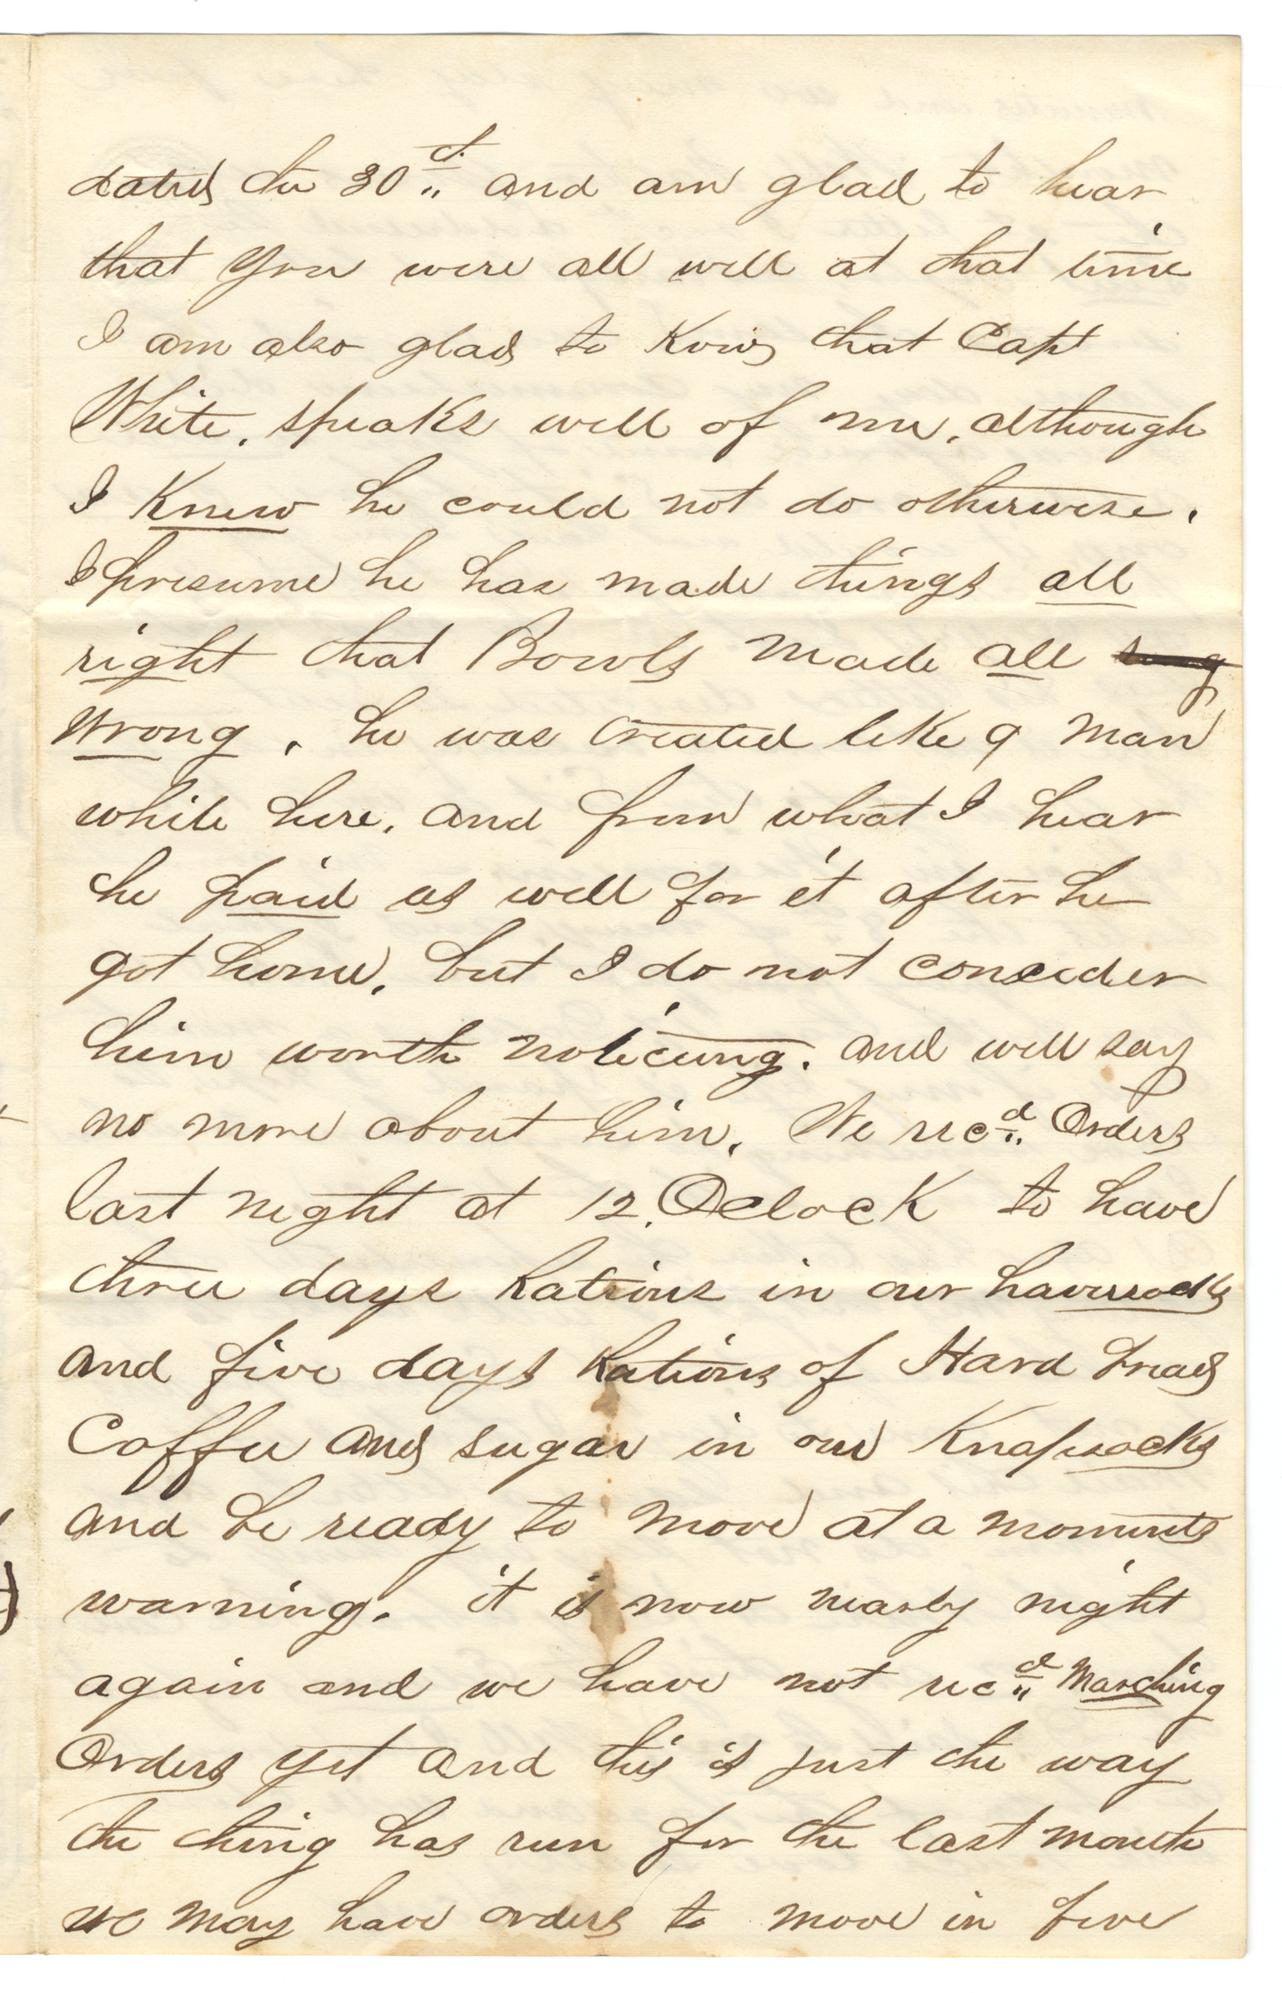 dated the 30th and am glad to hear
that you were all well at that time
I am also glad to Know that Capt
White, speaks well of me, although
I Knew he could not do otherwise.
I presume he has made things all
right that Bowls made all
wrong. he was treated like a man
while here, and from what I hear
he paid us well for it after he
got home, but I do not concider
him worth noticeing. and will say
no more about him. We recd Orders
last night at 12, Oclock to have
three days Rations in our haversacks
and five days Rations of Hard bread
Coffee and sugar in our Knapsacks
and be ready to move at a moments
warning. it is now nearly night
again and we have not recd Marching
Orders yet and this is just the way
the thing has run for the last month
we may have orders to move in five